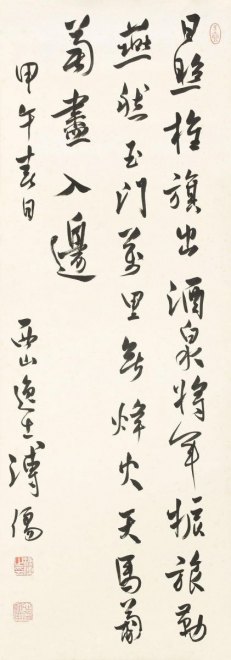 日照旌旗出酒泉將軍振旅勒
燕然玉門萬里無烽火天馬葡
萄盡入邊
甲午春日 西山逸士溥儒